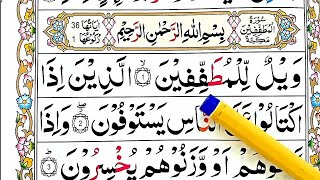 سُوْرَةُ الْمُطَفِّفِيْنَ مَكِّيَّةٌ
بِسْمِ اللهِ الرَّحْمٰنِ الرَّحِيْمِ
اٰيَاتُهَا 36 رُكُوْعُهَا 1
وَيْلٌ لِّلْمُطَفِّفِيْنَ ۝1 الَّذِيْنَ اِذَا
اكْتَالُوْا عَلَى النَّاسِ يَسْتَوْفُوْنَ ۝2 وَاِذَا
اَوْ وَّزَنُوْهُمْ يُخْسِرُوْنَ ۝3